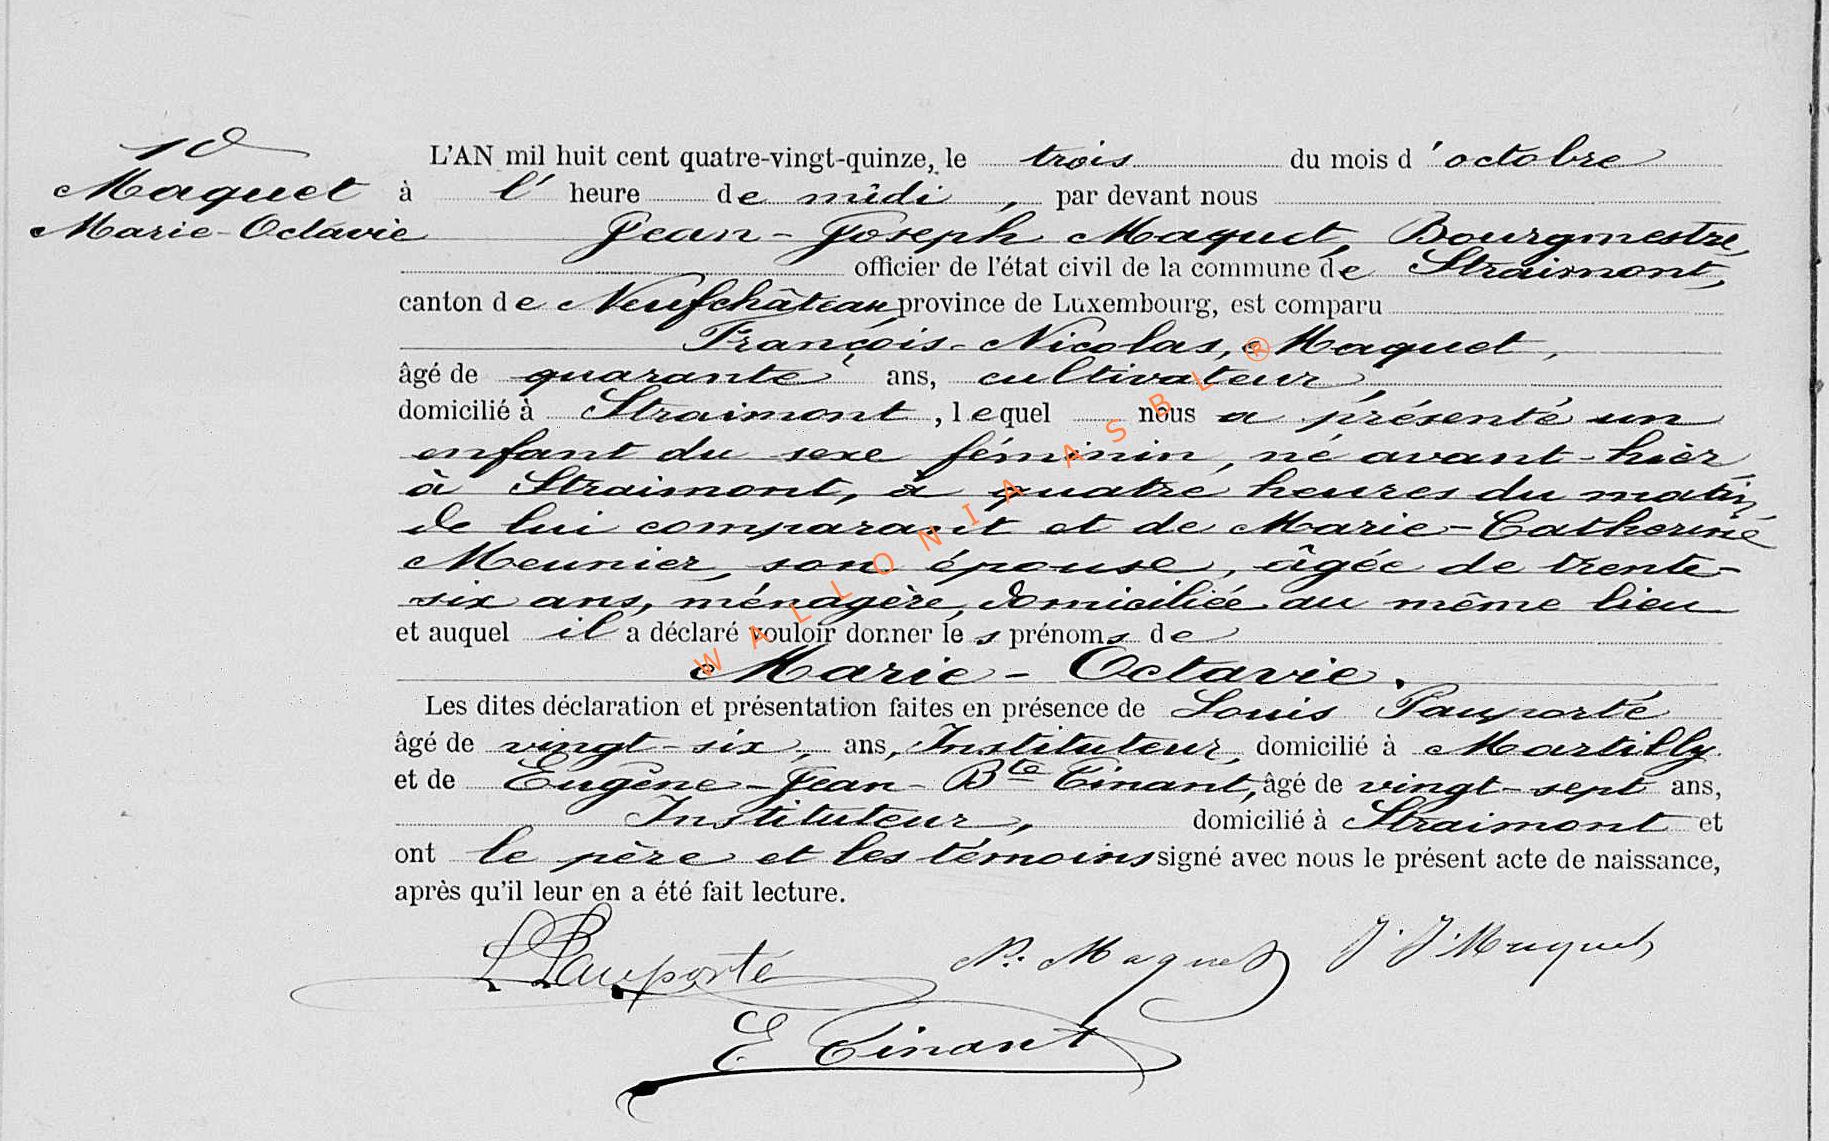 10
Maquet
Marie-Octavie
L'AN mil huit cent quatre-vingt-quinze, le trois du mois d'octobre
à l'heure de midi, par devant nous
Jean-Joseph Maquet, Bourgmestre,
officier de l'état civil de la commune de Straimont,
canton de Neufchâteau, province de Luxembourg, est comparu
François-Nicolas, Maquet,
âgé de quarante ans, cultivateur,
domicilié à Straimont, lequel nous a présenté un
enfant du sexe féminin, né avant-hier,
à Straimont, à quatre heures du matin,
de lui comparant et de Marie-Catherine
Meunier, son épouse, âgée de trente-
six ans, ménagère, domiciliée au même lieu
et auquel il a déclaré vouloir donner les prénoms de
Marie-Octavie.
Les dites déclaration et présentation faites en présence de Louis Pauporté
âgé de vingt-six, ans, Instituteur, domicilié à Martilly
et de Eugène-Jean-Bte Tinant, âgé de vingt-sept ans,
Instituteur, domicilié à Straimont et
ont le père et les témoins signé avec nous le présent acte de naissance,
après qu'il leur en a été fait lecture.
L Pauporté N. Maquet J. J. Maquet
E Tinant
WALLONIA ASBL ®